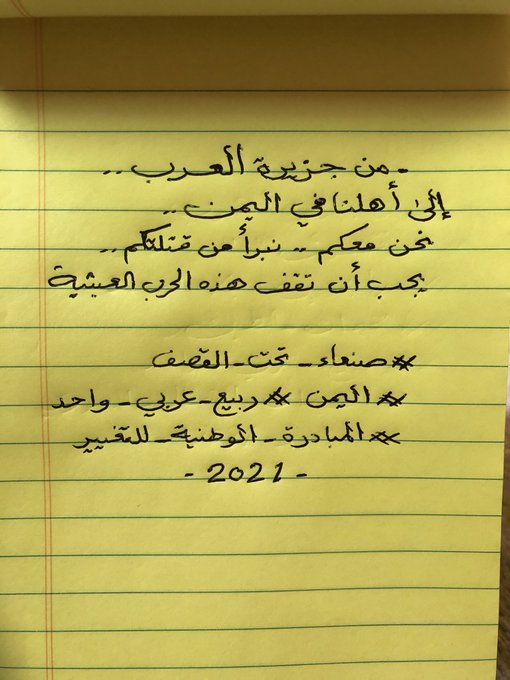 - من جزيرة العرب ..
إلى أهلنا في اليمن ..
نحن معكم .. نبرأ من قتلتكم ..
يجب أن تقف هذه الحرب العبثية
#صنعاء_تحت_القصف
#اليمن #ربيع_عربي_واحد
#المبادرة_الوطنية_للتغيير
- 2021 -